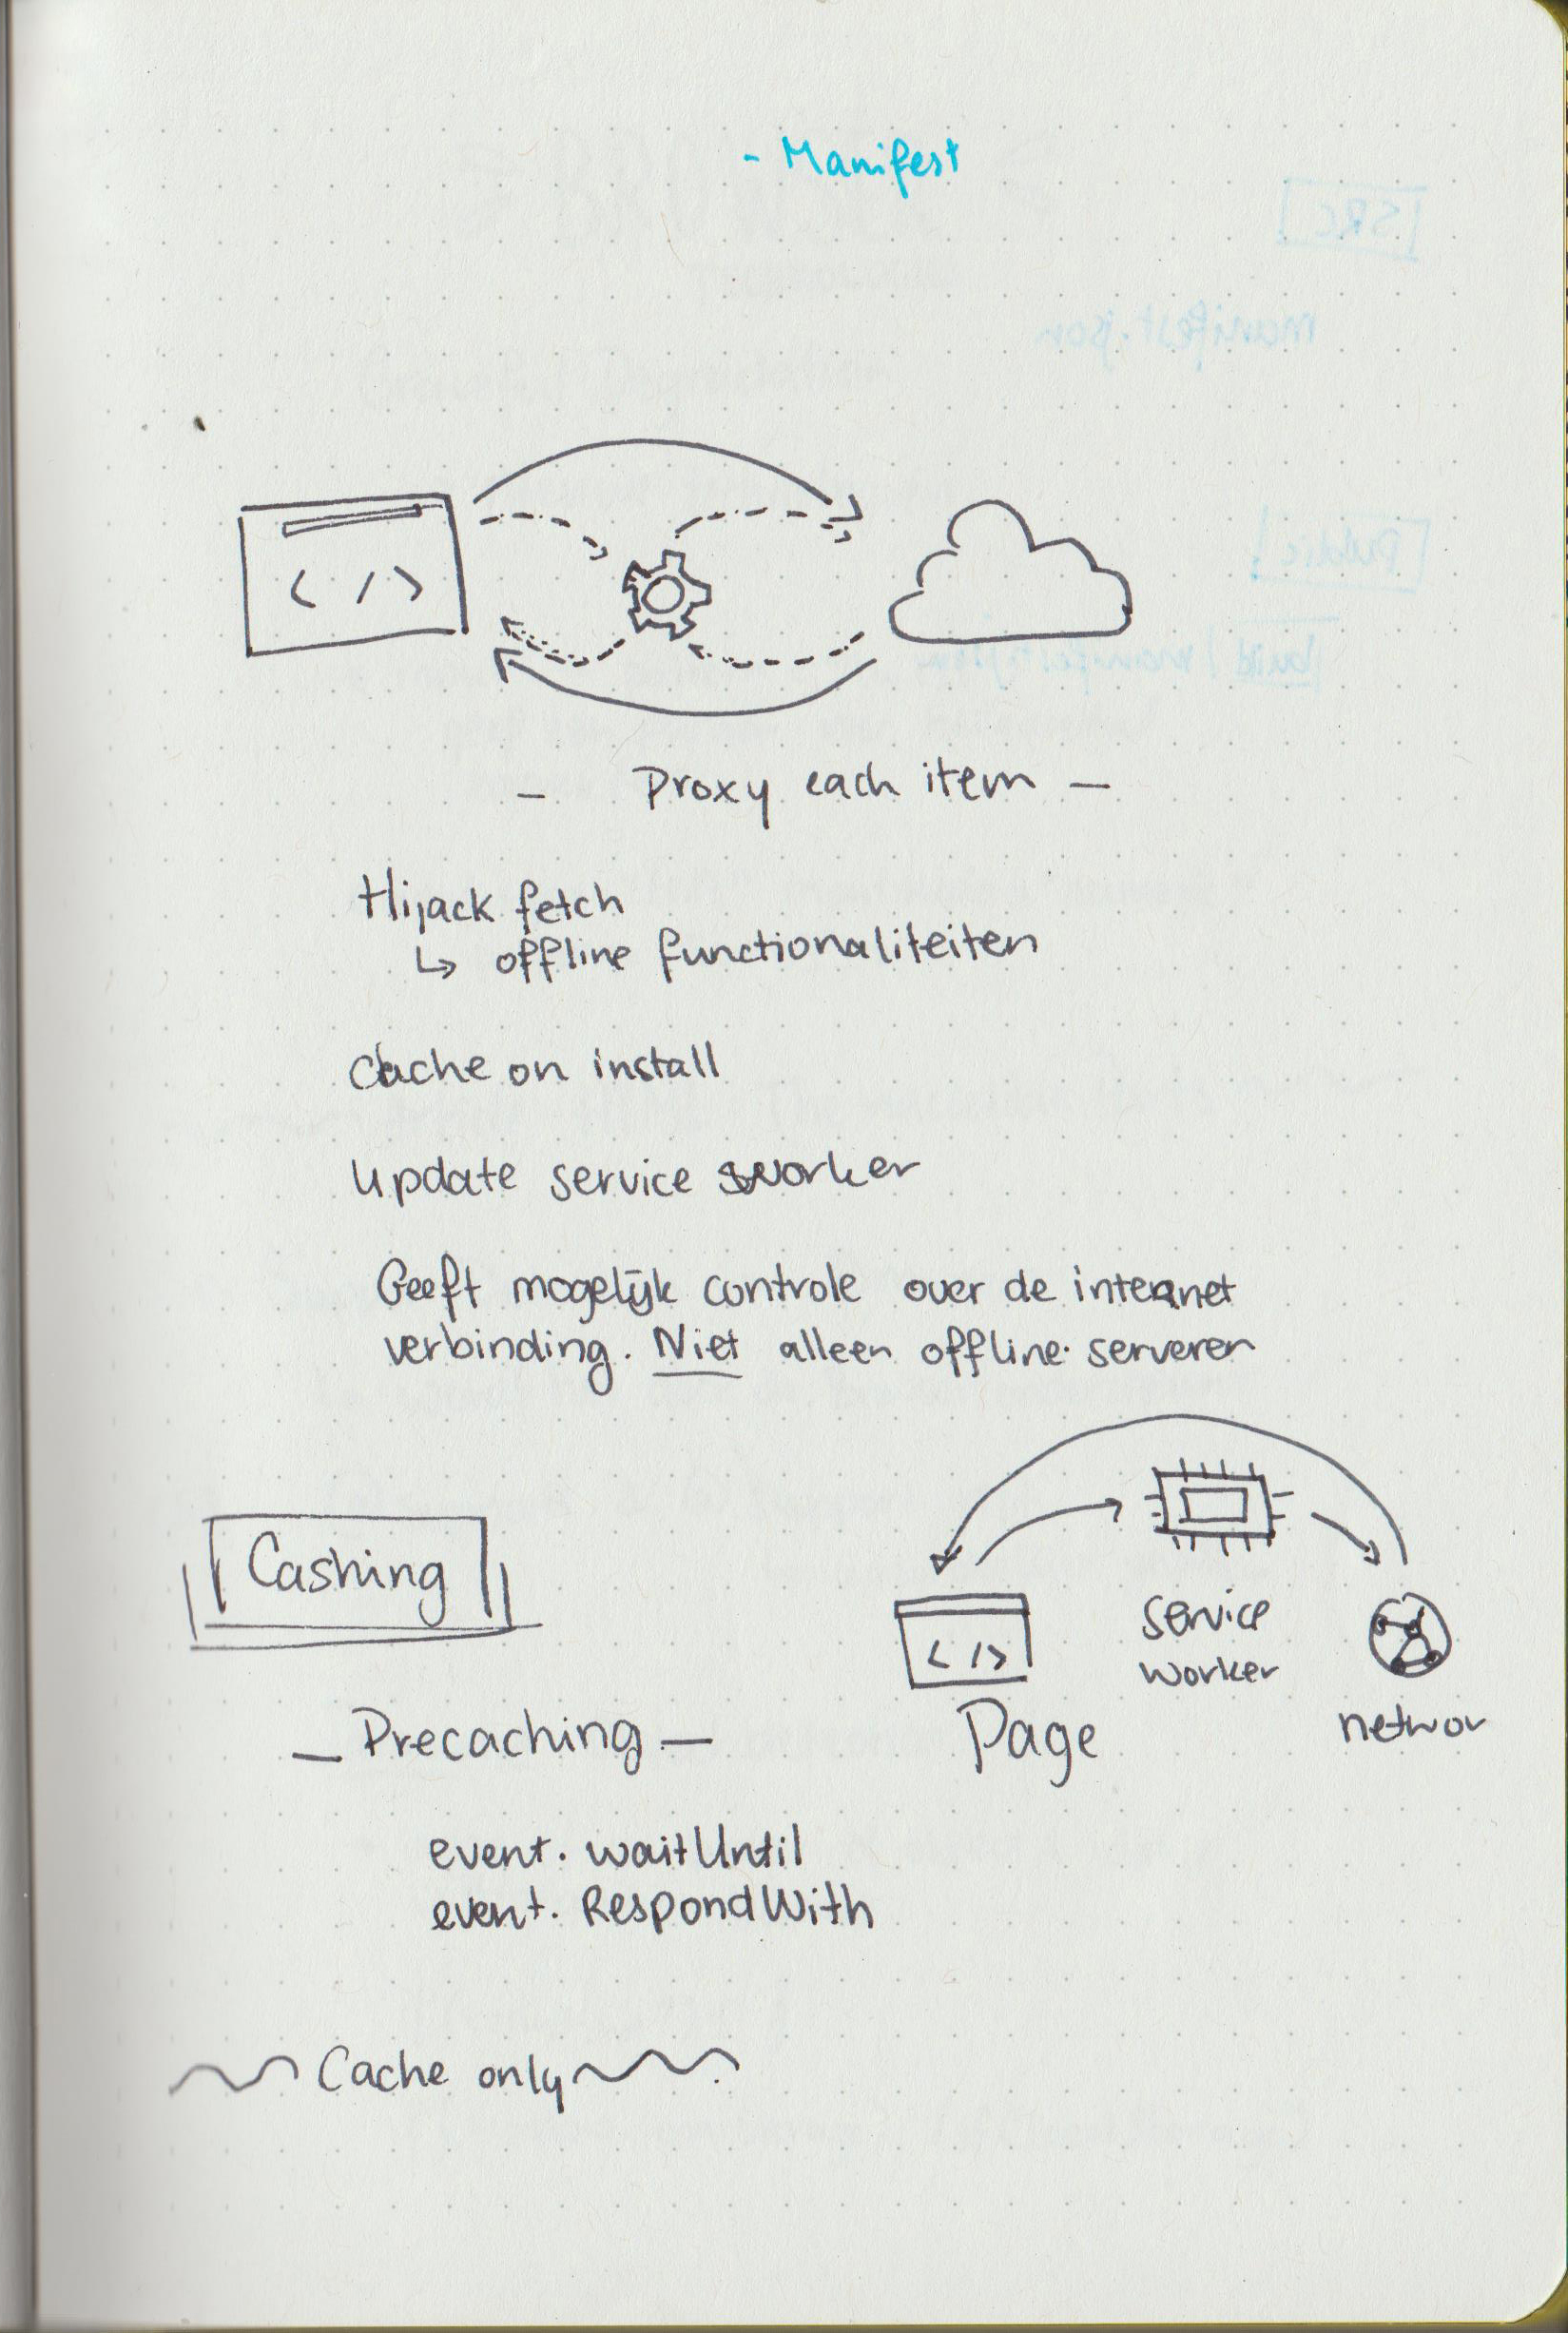 - Manifest
SRC
manifest.json
< / >
Public
build / manifest.json
- Proxy each item -
Hijack fetch
↳ offline functionaliteiten
Cache on install
Update service worker
Geeft mogelijk controle over de internet
verbinding. Niet alleen offline serveren
Cashing
< / >
service
worker
Page
networ
- Precaching -
event. waitUntil
event. RespondWith
Cache only